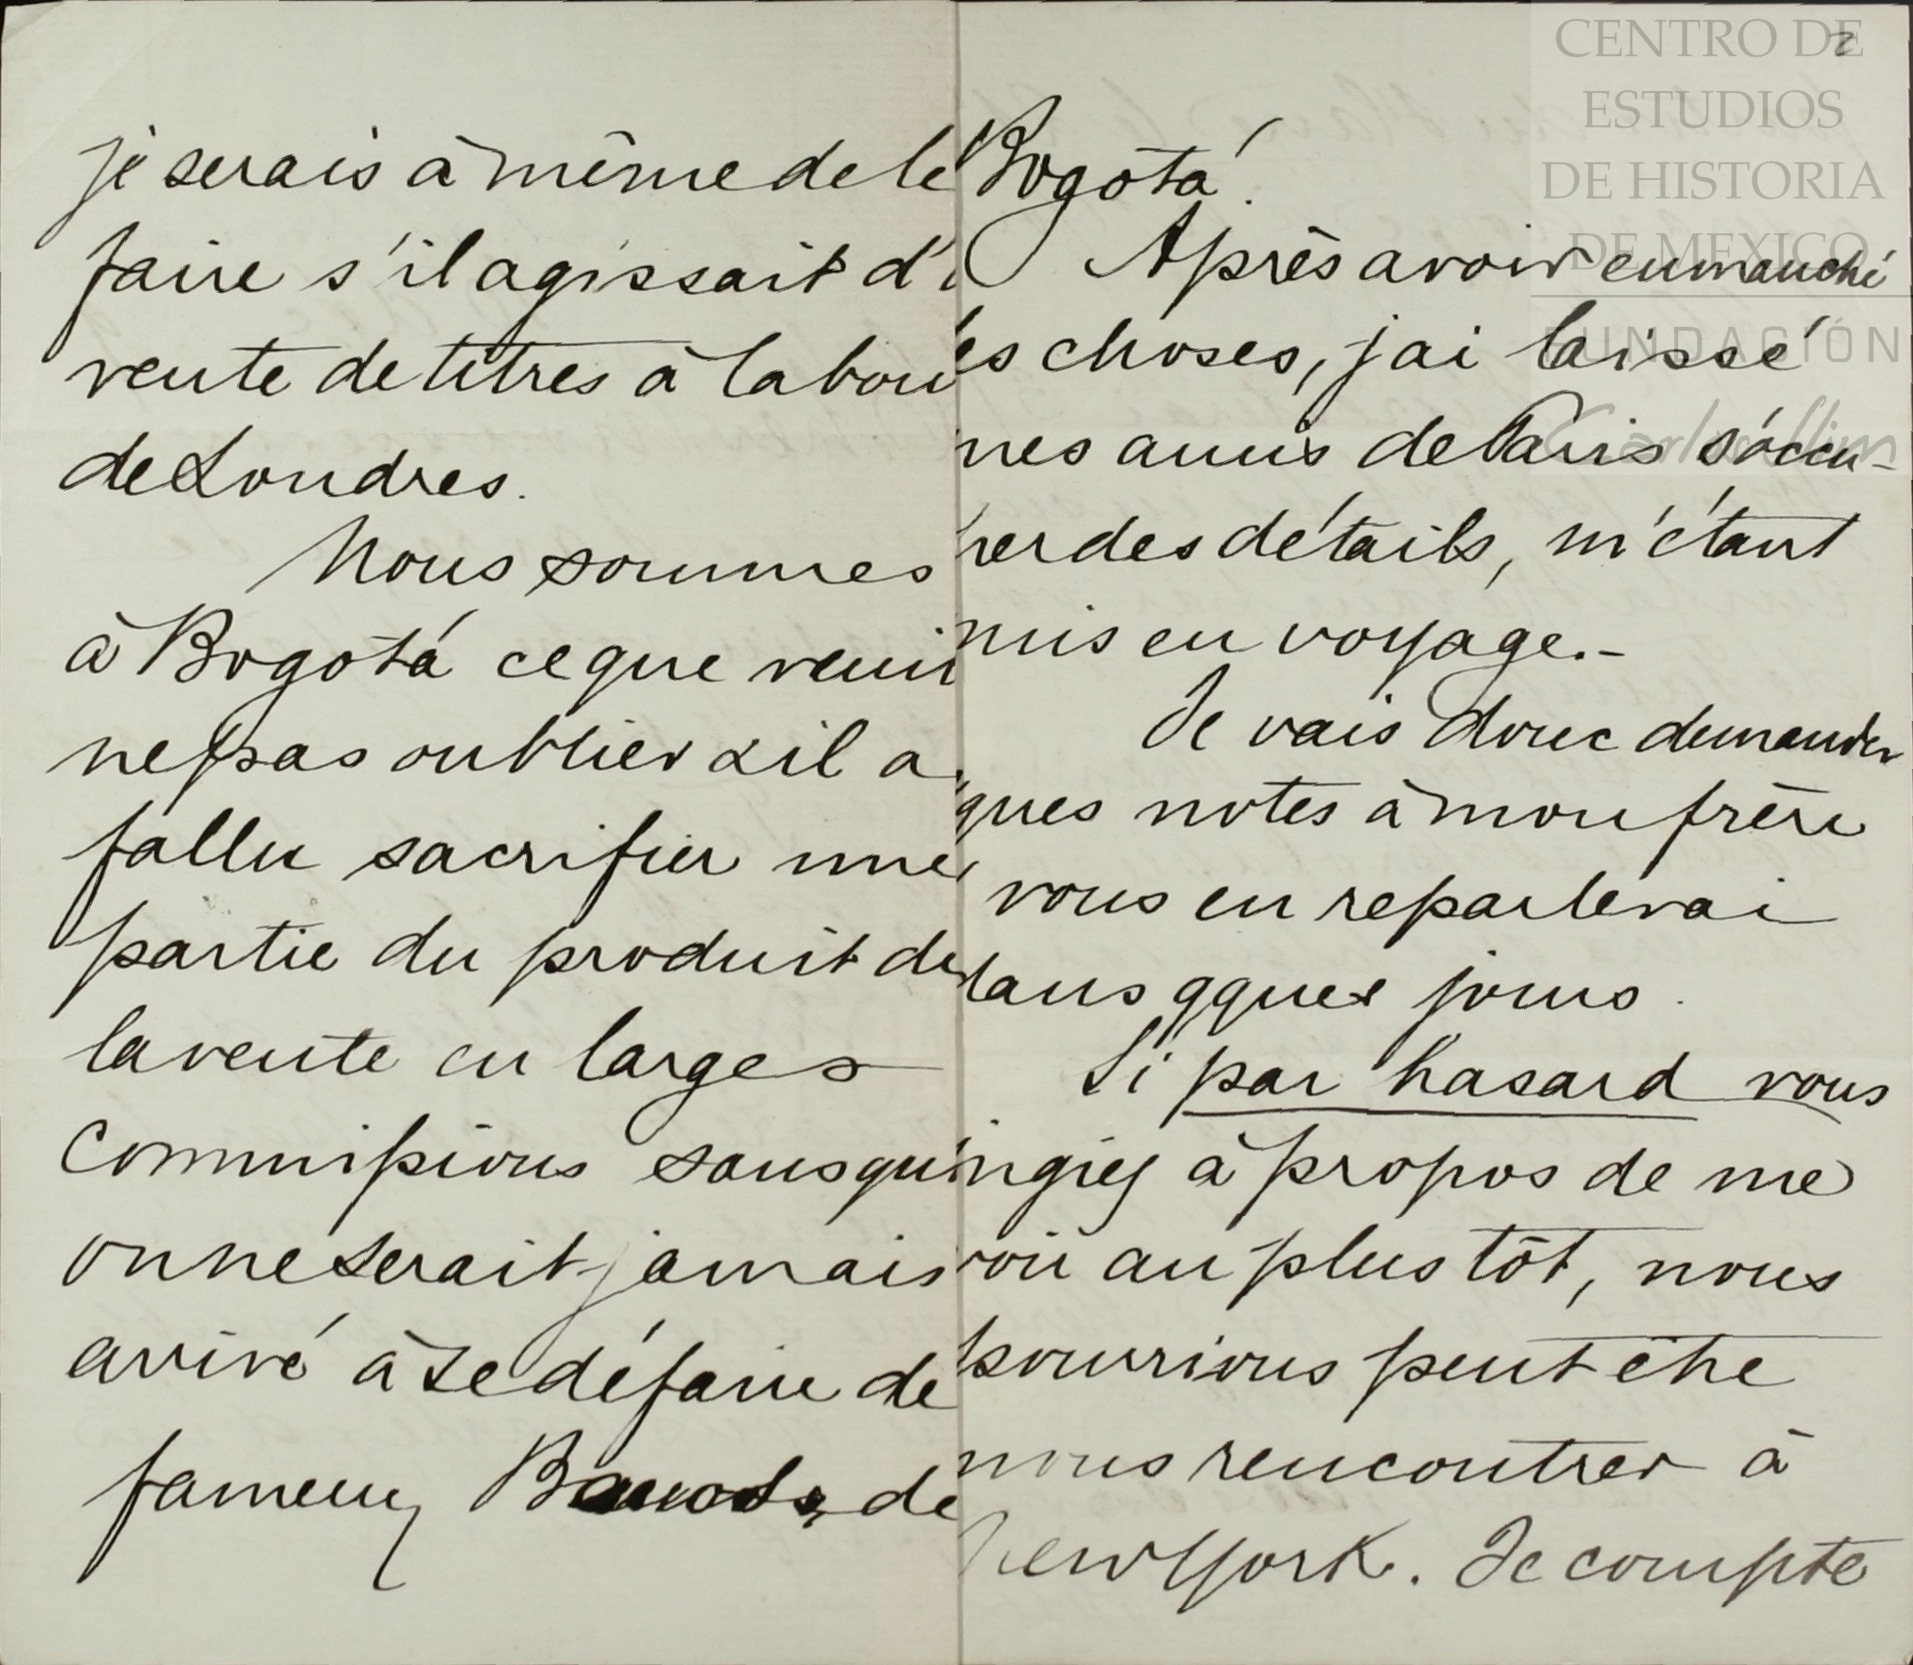 je serais à même de le
faire s'il agissait d'
vente de titres à la bou
de Londres.
Nous sommes
à Bogotá ce que
ne pas oublier & il a
fallu sacrifier une
partie du produit de
la vente en larges
Commissions sans qu
on ne serait jamais
arrivé à se défaire de
fameux Bonds, de
2
Bogotá.
Après avoir emmanché
es choses, j'ai laissé
mes amis de Paris s'occu-
per des détails, m'étant
mis en voyage.-
Je vais donc demander
ques notes à mon frère
vous en reparlerai
dans qques jours.
Si par hasard vous
ngiez à propos de me
voir au plus tôt, nous
pourrions peut être
nous rencontrer à
New York. Je compte
CENTRO DE
ESTUDIOS
DE HISTORIA
DE MEXICO
FUNDACIÓN
Carlos Slim